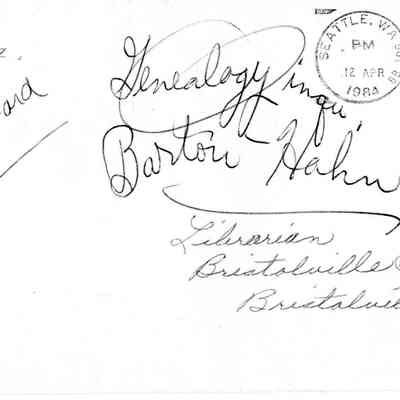 SEATTLE, WA
PM
12 APR
1984
Genealogy inqu.
Barton Hahn
ard
Librarian
Bristolville
Bristolvi